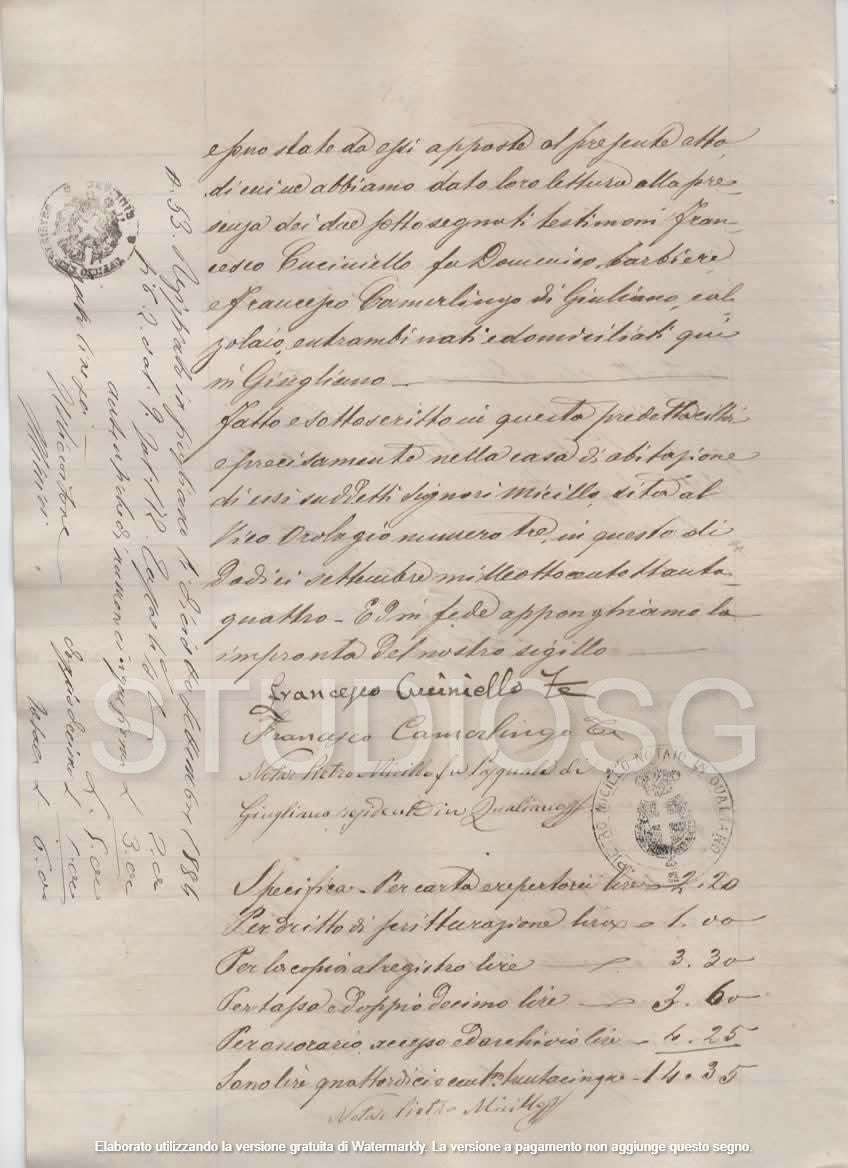 e sono state da essi apposte al presente atto,
di cui ne abbiamo dato loro lettura alla pre-
senza dei due sottosegnati testimoni Fran-
cesco Cuciniello fu Domenico, barbiere
e Francesco Camerlingo di Giuliano, cal-
zolaio, entrambi nati e domiciliati qui
in Giugliano
Fatto e sottoscritto in questa predetta città
e precisamente nella casa di abitazione
di essi suddetti Signori Micillo, sita al
Vico Orologio numero tre, in questo dì
Dodici settembre milleottocentottanta
quattro - Ed in fede apponghiamo la
impronta del nostro sigillo
Francesco Cuciniello Te
Francesco Camerlingo Te
Notar Pietro Micillo fu Pasquale di
Giugliano residente in Qualiano
PIETRO MICILLO NOTAIO IN QUALIANO
Specifica - Per carta e repertorio lire 2.20
Per dritto di scritturazione lire 1.00
Per la copia al registro lire 3.30
Per tassa e doppio decimo lire 3.60
Per onorario, accesso ed archivio lire 4.25
Sono lire quattordici e cent. trentacinque - 14.35
Notar Pietro Micillo
N. 53. Registrato in Giugliano li Dieci settembre 1884
Il Ricevitore
STUDIOSG
Elaborato utilizzando la versione gratuita di Watermarkly. La versione a pagamento non aggiunge questo segno.